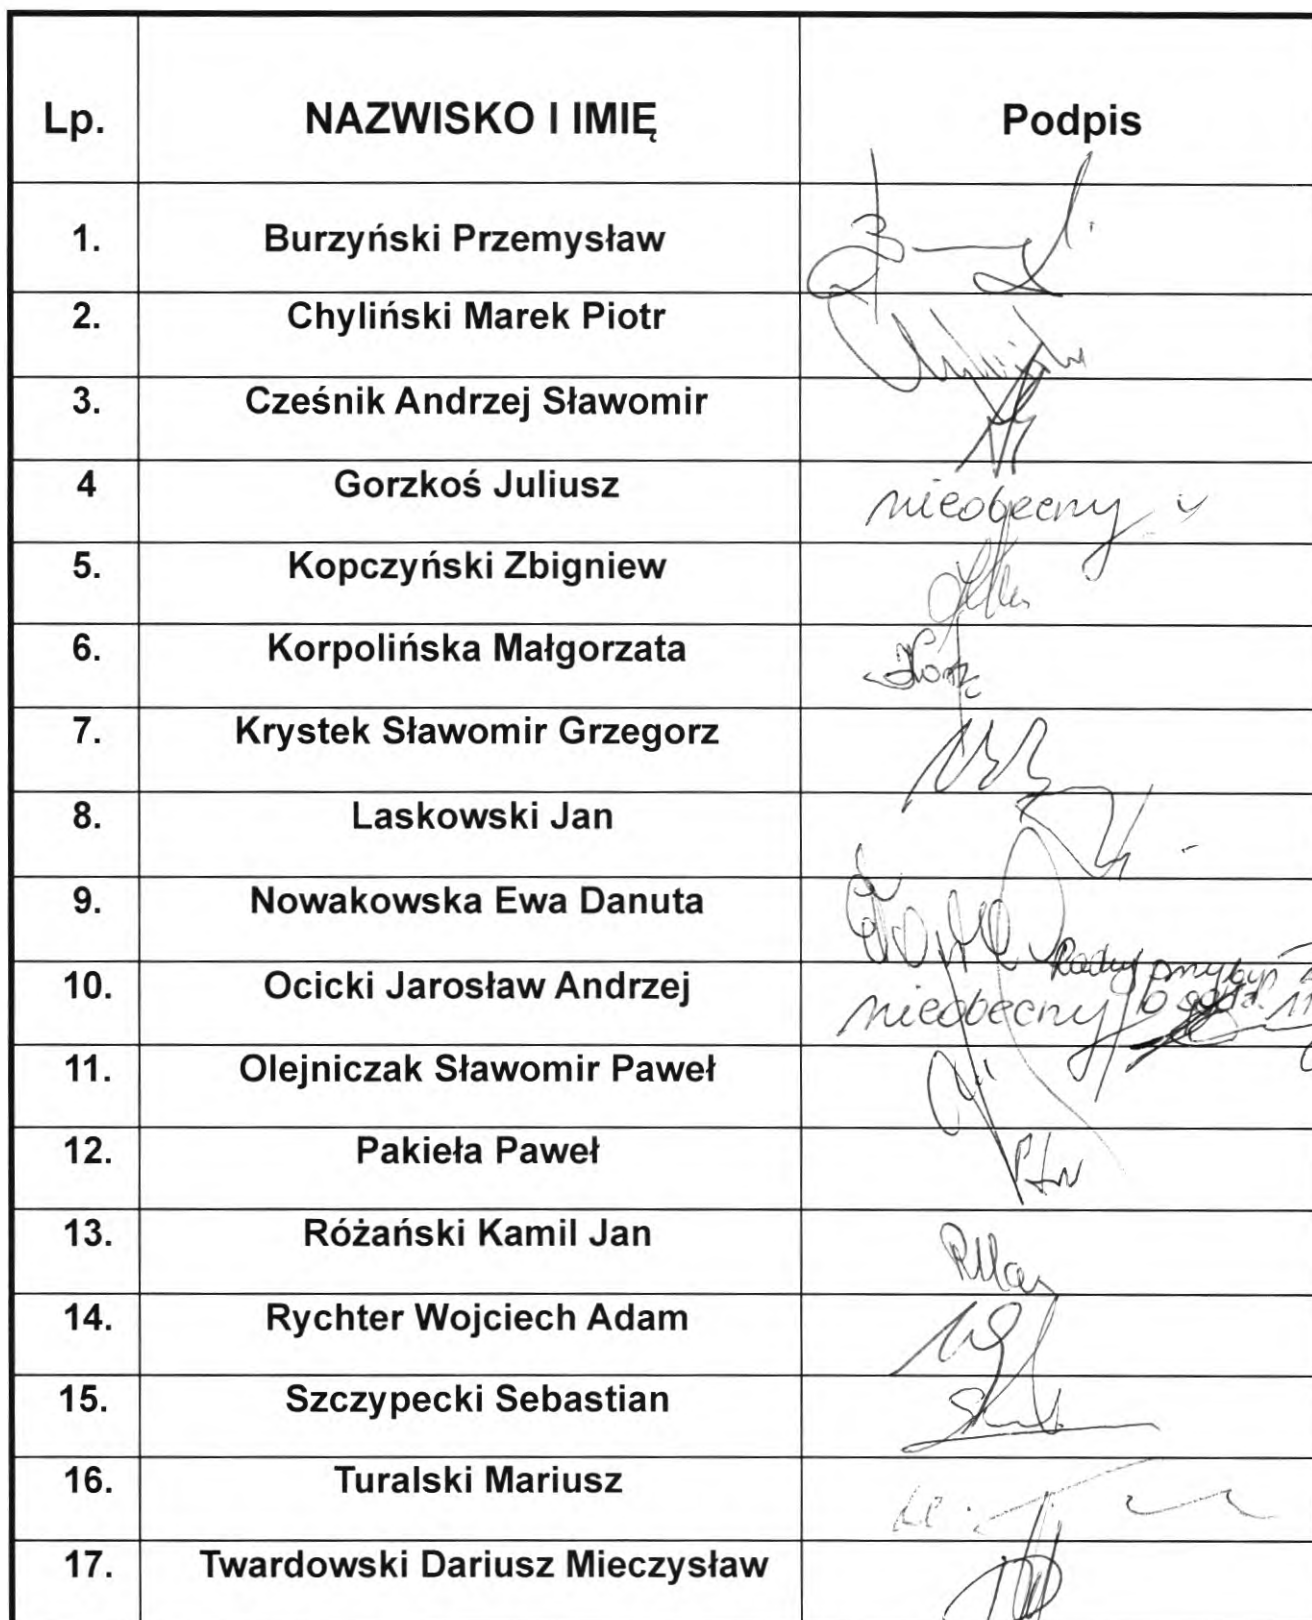 Lp. NAZWISKO I IMIĘ Podpis
1. Burzyński Przemysław
2. Chyliński Marek Piotr
3. Cześnik Andrzej Sławomir
4 Gorzkoś Juliusz nieobecny
5. Kopczyński Zbigniew
6. Korpolińska Małgorzata
7. Krystek Sławomir Grzegorz
8. Laskowski Jan
9. Nowakowska Ewa Danuta
Radny przybył
10. Ocicki Jarosław Andrzej nieobecny o godz. 11
11. Olejniczak Sławomir Paweł
12. Pakieła Paweł
13. Różański Kamil Jan
14. Rychter Wojciech Adam
15. Szczypecki Sebastian
16. Turalski Mariusz
17. Twardowski Dariusz Mieczysław